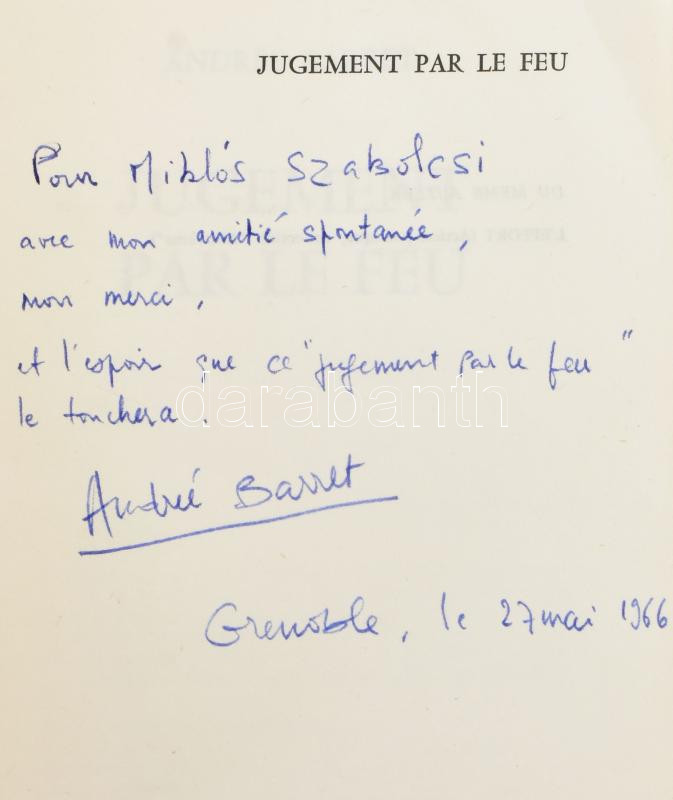 JUGEMENT PAR LE FEU
Pour Miklós Szabolcsi
avec mon amitié spontanée,
mon merci,
et l'espoir que ce "jugement par le feu"
le touchera.
darabanth
André Barret
Grenoble, le 27 mai 1966